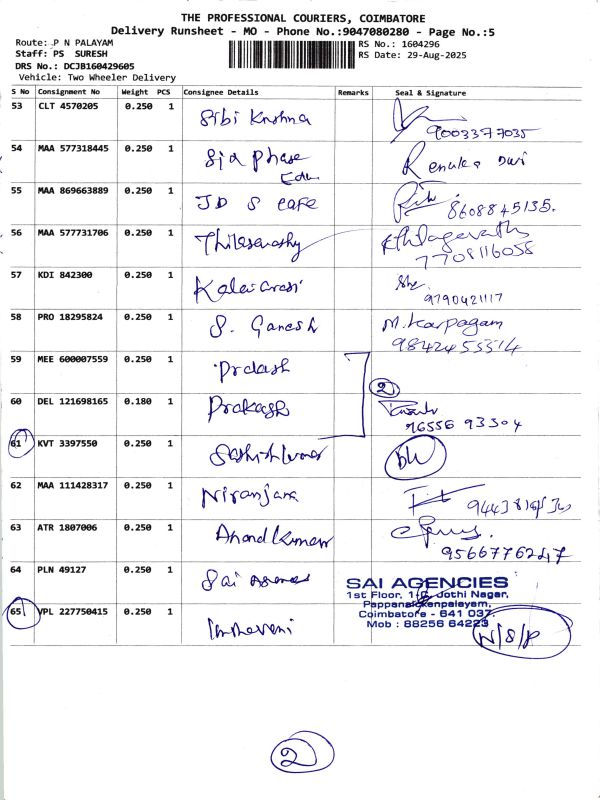 THE PROFESSIONAL COURIERS, COIMBATORE
Delivery Runsheet - MO - Phone No.:9047080280 - Page No.:5
Route: P N PALAYAM
RS No.: 1604296
Staff: PS SURESH
RS Date: 29-Aug-2025
DRS No.: DCJB160429605
Vehicle: Two Wheeler Delivery
S No Consignment No Weight PCS Consignee Details Remarks Seal & Signature
53 CLT 4570205 0.250 1 Sibi Krishna
9003377035
54 MAA 577318445 0.250 1 Sia Phase Renuka Devi
Edu
55 MAA 869663889 0.250 1 JD S cafe 8608845135.
56 MAA 577731706 0.250 1
7708116058
57 KDI 842300 0.250 1 Kalaiarasi
9790421117
58 PRO 18295824 0.250 1 S. Ganesh M. Karpagam
9842453314
59 MEE 600007559 0.250 1 Prakash
2
60 DEL 121698165 0.180 1 Prakash
96556 93304
61 KVT 3397550 0.250 1
62 MAA 111428317 0.250 1 Niranjana
63 ATR 1807006 0.250 1 Anandkumar
9566776247
64 PLN 49127 0.250 1 Sai
SAI AGENCIES
1st Floor, Jothi Nagar,
Pappanaickenpalayam,
Coimbatore - 641 037.
Mob : 88256 64223
65 VPL 227750415 0.250 1
N/S/P
2